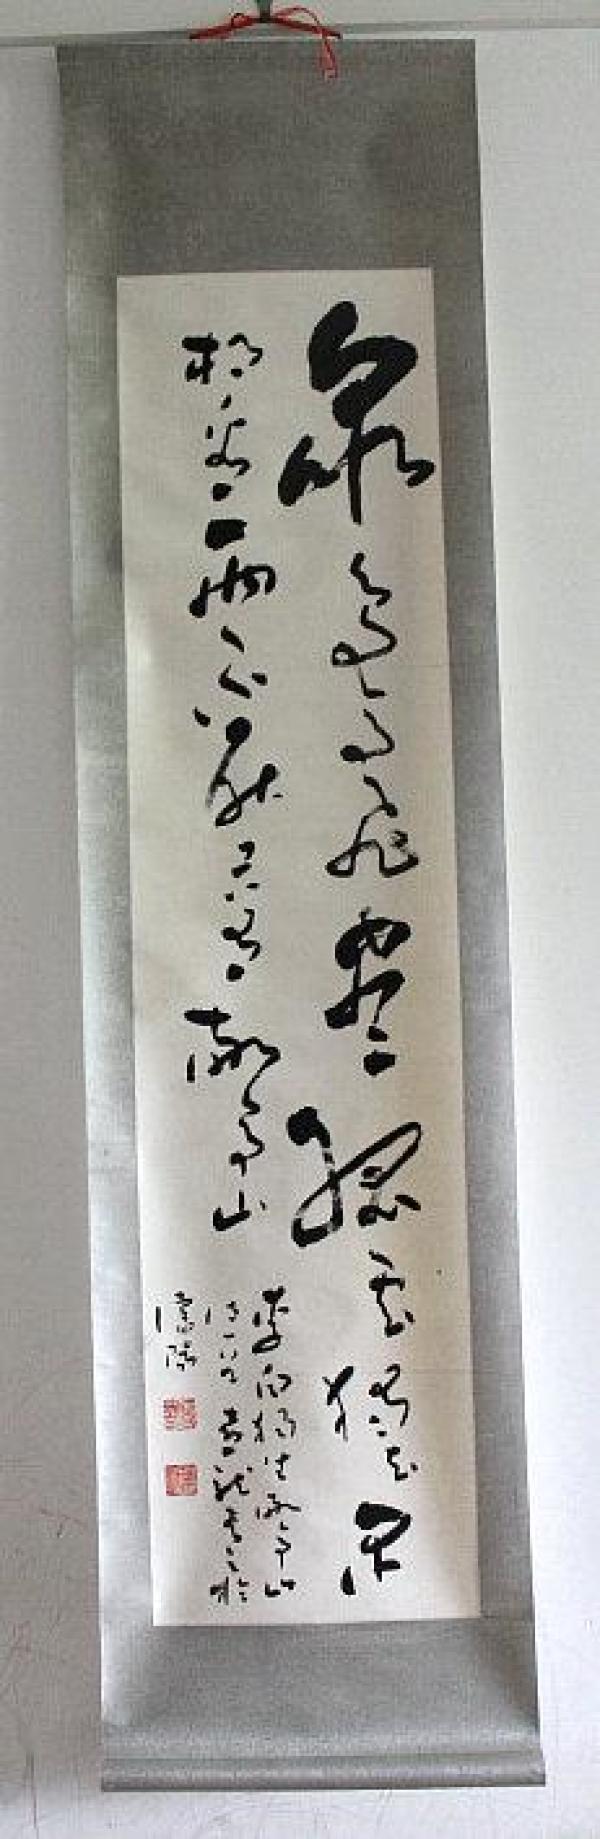 眾鳥高飛盡孤雲獨去閑
相看兩不厭只有敬亭山
李白獨坐敬亭山
詩一首